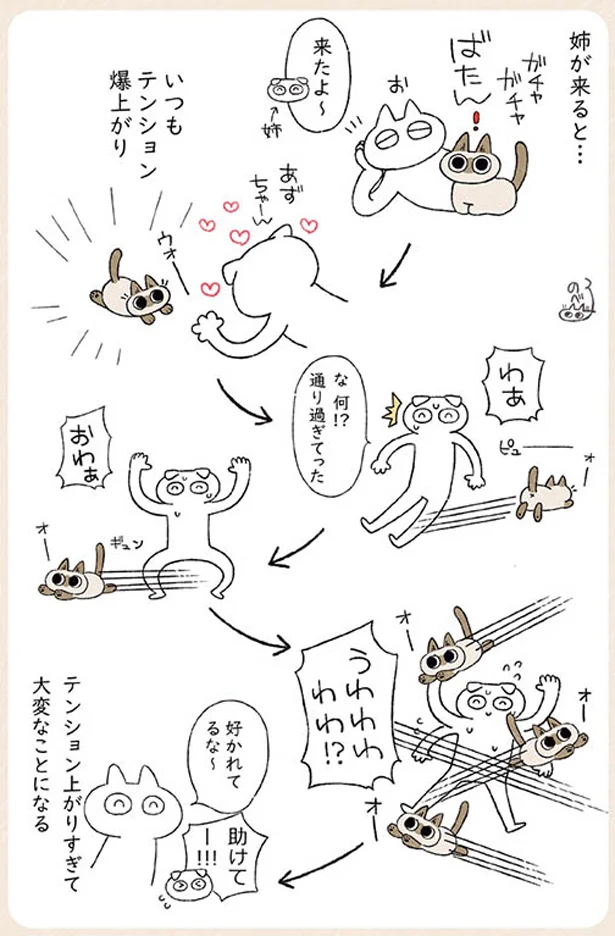 姉が来ると…
ガチャ
ガチャ
ばたん!
お
来たよ〜
←姉
いつも
テンション
爆上がり
あず
ちゃーん
ウォー
のべ
わぁ
な 何!?
通り過ぎてった
ピュー
ォー
おわぁ
ギュン
オー
オー
うわわわ
わわ!?
オー
オー
好かれて
るな〜
助けて
ー!!!
テンション上がりすぎて
大変なことになる